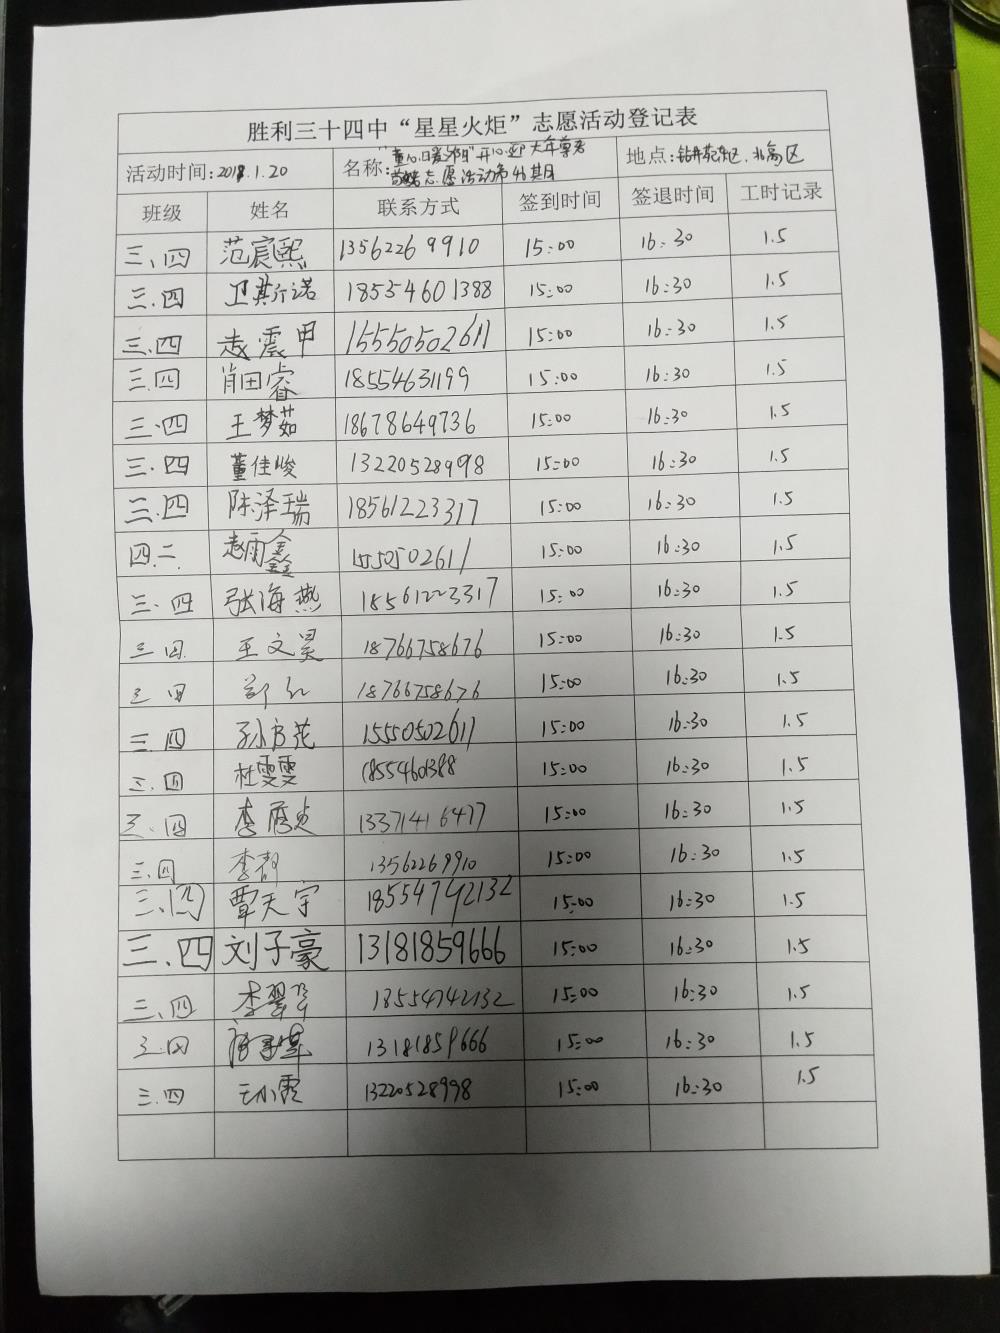 胜利三十四中“星星火炬”志愿活动登记表
活动时间:2018.1.20 名称:"童心暖夕阳"开心迎大年尊老 地点:钻井苑东区、北高区
志愿活动第46期
班级 姓名 联系方式 签到时间 签退时间 工时记录
三、四 范宸熙 13562269910 15:00 16:30 1.5
三.四 卫其尔诺 18554601388 15:00 16:30 1.5
三.四 赵震甲 15550502611 15:00 16:30 1.5
三.四 肖田睿 18554631199 15:00 16:30 1.5
三.四 王梦茹 18678649736 15:00 16:30 1.5
三.四 董佳峻 13220528998 15:00 16:30 1.5
三.四 陈泽瑞 18561223317 15:00 16:30 1.5
四.二 赵雨鑫 1550502611 15:00 16:30 1.5
三.四 张海燕 18561223317 15:00 16:30 1.5
三.四 王文昊 18766758676 15:00 16:30 1.5
三.四 郭红 18766758676 15:00 16:30 1.5
三.四 孙方苑 15550502611 15:00 16:30 1.5
三.四 杜雯雯 18554601388 15:00 16:30 1.5
三.四 李 13371416477 15:00 16:30 1.5
三.四 李 13562269910 15:00 16:30 1.5
三.四 覃天宇 18554742132 15:00 16:30 1.5
三.四 刘子豪 13181859666 15:00 16:30 1.5
三.四 李翠 18554742132 15:00 16:30 1.5
三.四 13181859666 15:00 16:30 1.5
三.四 王小霞 13220528998 15:00 16:30 1.5